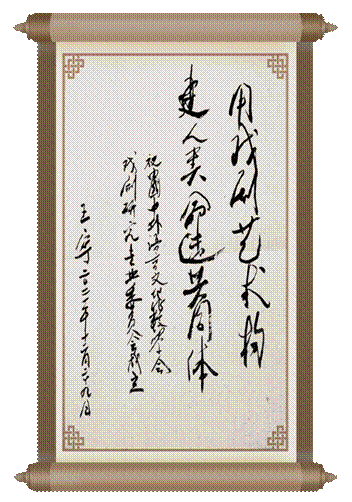 用戏剧艺术构
建人类命运共同体
祝中国中外语言文化比较学会
戏剧研究专业委员会成立
王宁 二〇二一年十二月二十九日